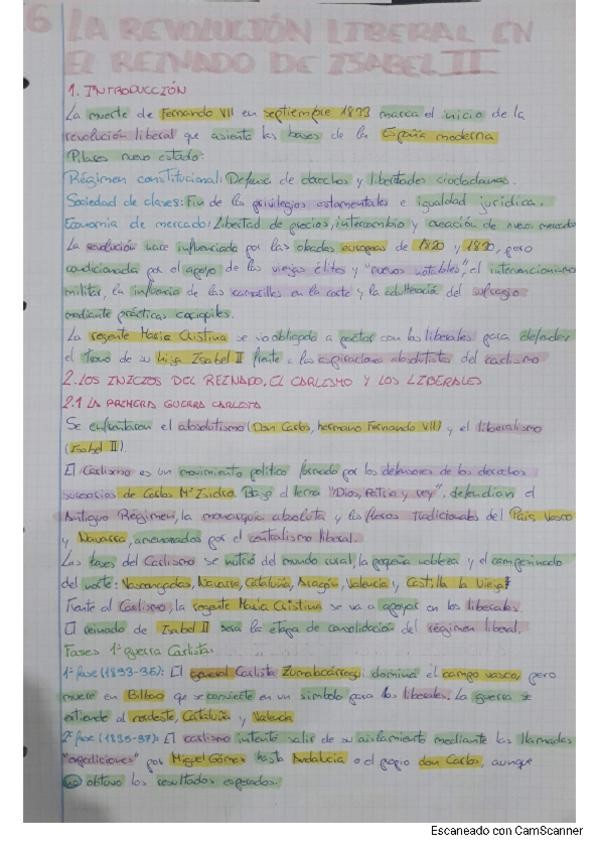 6 LA REVOLUCIÓN LIBERAL EN
EL REINADO DE ISABEL II
1. INTRODUCCIÓN
La muerte de Fernando VII en septiembre 1833 marca el inicio de la
revolución liberal que asienta las bases de la España moderna
Pilares nuevo estado:
Régimen constitucional: Defensa de derechos y libertades ciudadanas.
Sociedad de clases: Fin de los privilegios estamentales e igualdad jurídica.
Economía de mercado: Libertad de precios, intercambio y creación de nuevo mercado
La revolución nace influenciada por las oleadas europeas de 1820 y 1830, pero
condicionada por el apoyo de las viejas élites y "nuevos notables", el intervencionismo
militar, la influencia de las camarillas en la corte y la adulteración del sufragio
mediante prácticas caciquiles.
La regente María Cristina se vio obligada a pactar con los liberales para defender
el trono de su hija Isabel II frente a las aspiraciones absolutistas del carlismo
2. LOS INICIOS DEL REINADO, EL CARLISMO Y LOS LIBERALES
2.1 LA PRIMERA GUERRA CARLISTA
Se enfrentaron el absolutismo (Don Carlos, hermano Fernando VII) y el liberalismo
(Isabel II).
El Carlismo es un movimiento político formado por los defensores de los derechos
sucesorios de Carlos Mª Isidro. Bajo el lema "Dios, Patria y rey", defendían el
Antiguo Régimen, la monarquía absoluta y los fueros tradicionales del País Vasco
y Navarra, amenazados por el centralismo liberal.
Las bases del Carlismo se nutrió del mundo rural, la pequeña nobleza y el campesinado
del norte: Vascongadas, Navarra, Cataluña, Aragón, Valencia y Castilla la Vieja
Frente al Carlismo, la regente María Cristina se va a apoyar en los liberales.
El reinado de Isabel II será la etapa de consolidación del régimen liberal.
Fases 1ª guerra Carlista:
1ª fase (1833-35): El general Carlista Zumalacárregui domina el campo vasco, pero
muere en Bilbao que se convierte en un símbolo para los liberales. La guerra se
extiende al nordeste, Cataluña y Valencia
2ª fase (1835-37): El carlismo intentó salir de su aislamiento mediante las llamadas
"expediciones" por Miguel Gómez hasta Andalucía o el propio don Carlos, aunque
no obtuvo los resultados esperados.
Escaneado con CamScanner